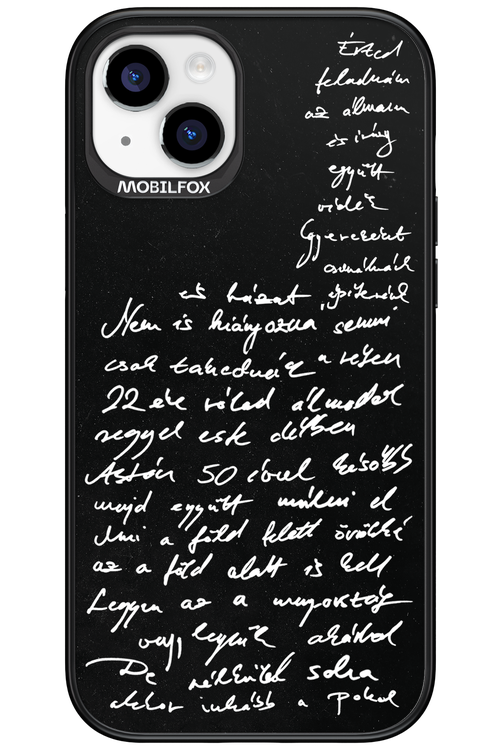 MOBILFOX
Érted
feladnám
az álmaim
és irány
együtt
vidék
Gyerekeket
csinálnánk
és házat építenénk
Nem is hiányozna semmi
csak takednék a
22 éve rólad álmodok
reggel este délben
Aztán 50 évvel később
majd együtt múlni el
Ami a föld felett örökké
az a föld alatt is kell
Legyen az a mennyország
vagy legyünk akárhol
De nélküled soha
akkor inkább a Pokol